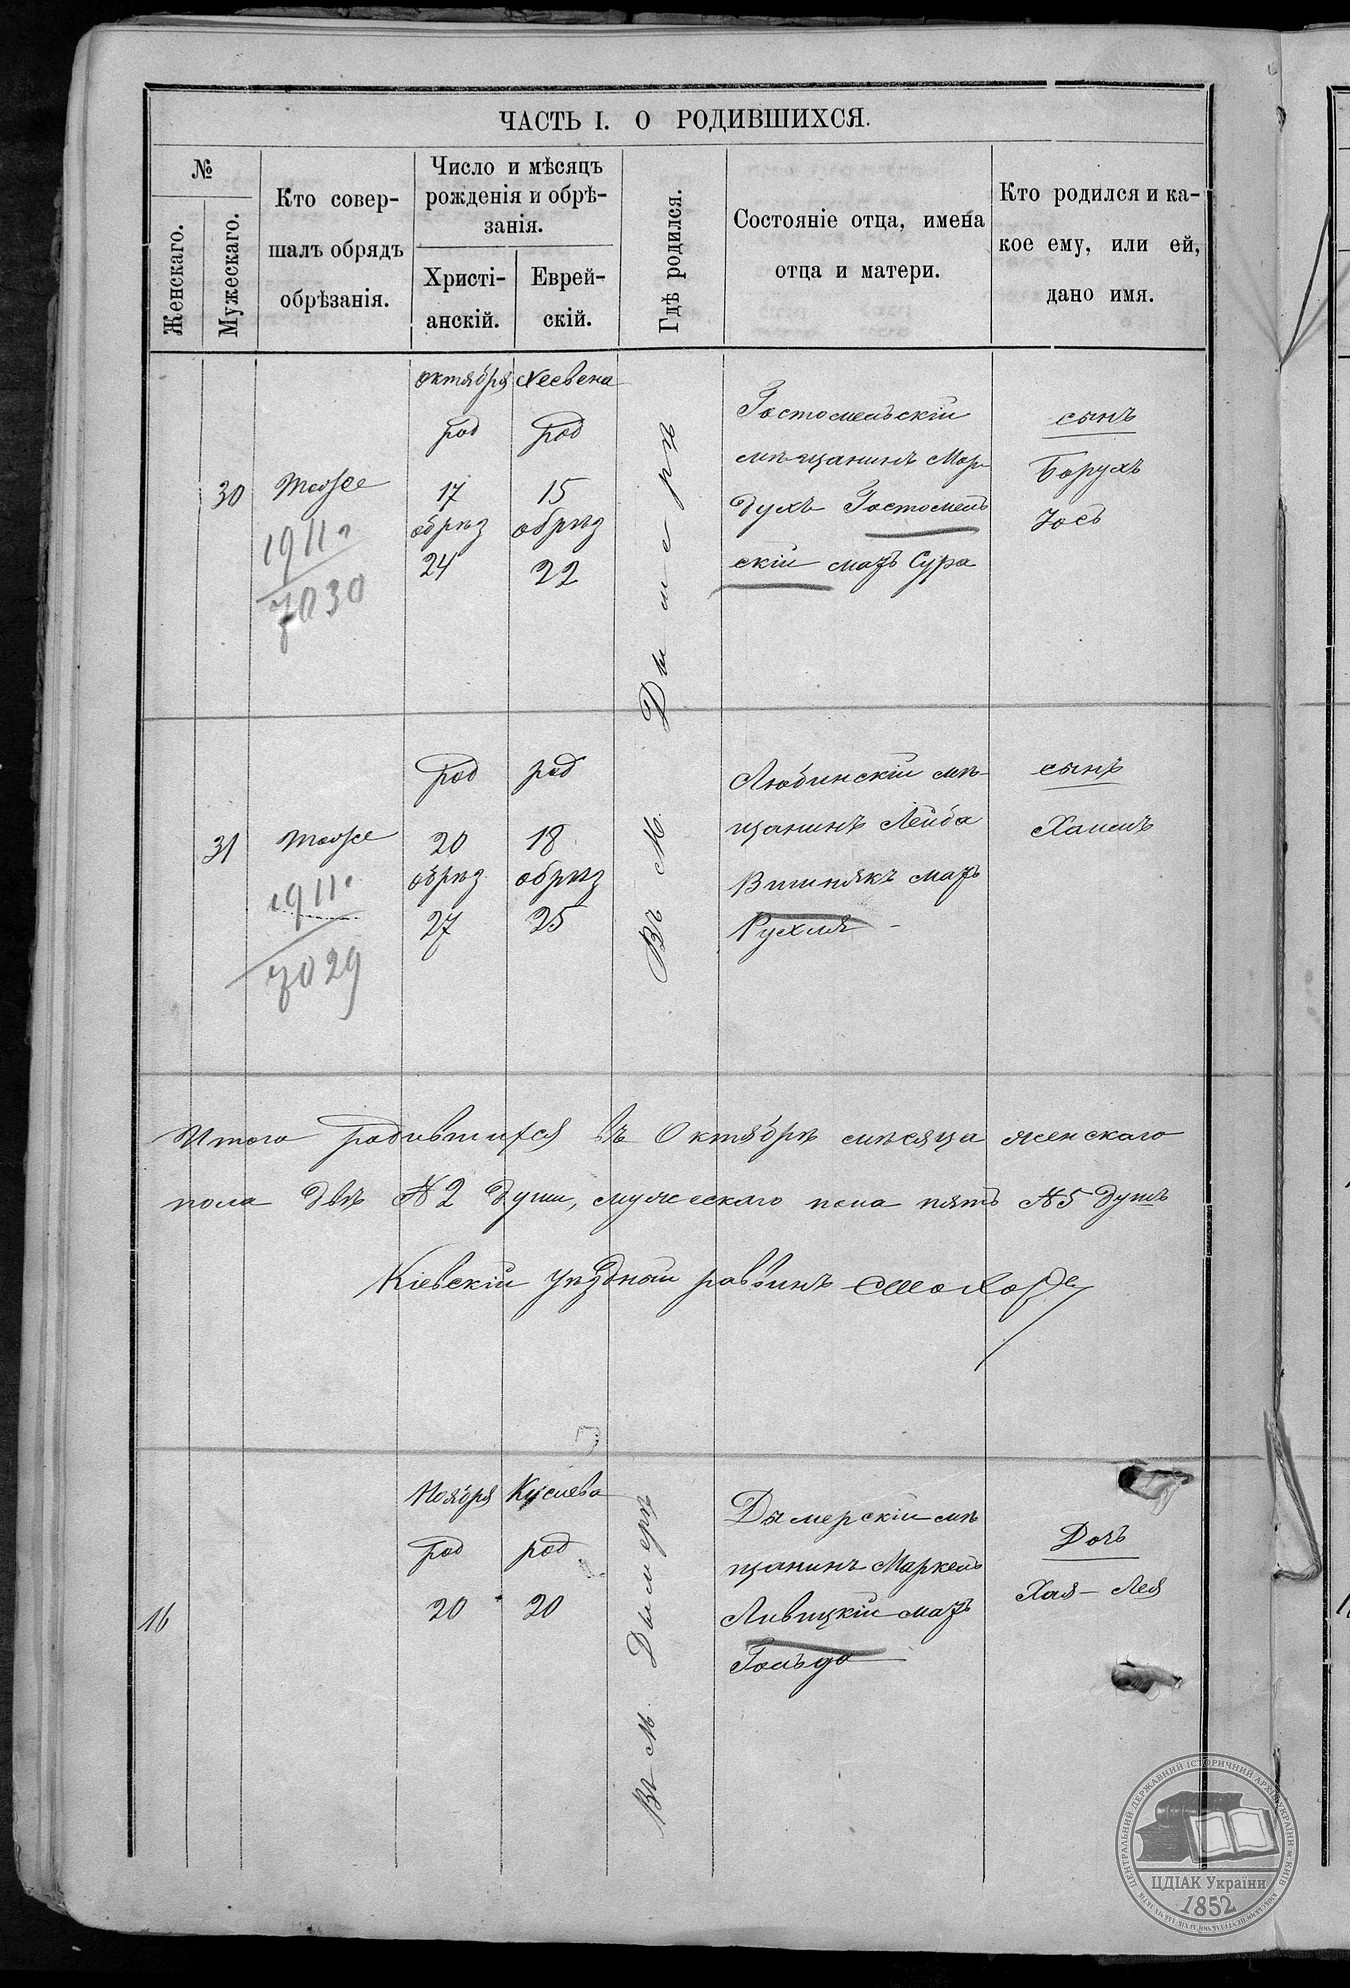 ЧАСТЬ I. О РОДИВШИХСЯ.
№
Женскаго.
Мужескаго.
Кто совер-
шалъ обрядъ
обрѣзанія.
Число и мѣсяцъ
рожденія и обрѣ-
занія.
Христі-
анскій.
Еврей-
скій.
Гдѣ родился.
Состояніе отца, имена
отца и матери.
Кто родился и ка-
кое ему, или ей,
дано имя.
30
тоже
1911
7030
октября
род
17
обрѣз
24
Хесвена
род
15
обрѣз
22
Въ М. Дымерѣ
Гостомельскій
мѣщанинъ Мор-
духъ Гостомель
скій мать Сура
сынъ
Борухъ
Іось
31
тоже
1911
7029
род
20
обрѣз
27
род
18
обрѣз
25
Любинскій мѣ-
щанинъ Лейба
Вишнякъ мать
Рухля
сынъ
Хаимъ
Итого родившихся въ Октябрѣ мѣсяца женскаго
пола двѣ № 2 души, мужескаго пола пять № 5 душъ
Кіевскій уѣздный раввинъ
16
Ноября
род
20
Кислева
род
20
Въ М. Дымерѣ
Дымерскій мѣ
щанинъ Маркель
Ливицкій мать
Гольда
Дочь
Хая-Лея
ЦЕНТРАЛЬНИЙ ДЕРЖАВНИЙ ІСТОРИЧНИЙ АРХІВ УКРАЇНИ м. КИЇВ
ЦДІАК України
1852